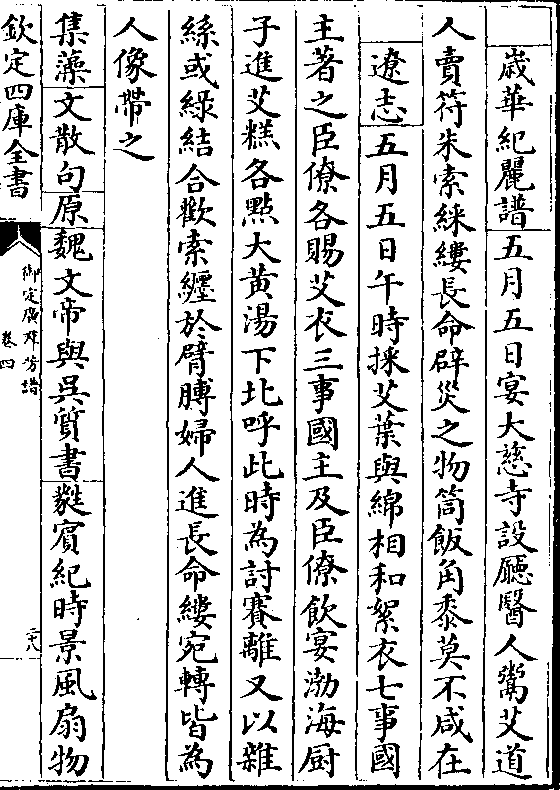 歳華紀麗譜五月五日宴大慈寺設廳醫人鬻艾道
人賣符朱索綵縷長命辟災之物筒飯角黍莫不咸在
遼志五月五日午時採艾葉與綿相和絮衣七事國
主著之臣僚各賜艾衣三事國主及臣僚飲宴渤海厨
子進艾糕各點大黄湯下北呼此時為討賽離又以雜
絲或綠結合歡索纒於臂膊婦人進長命縷宛轉皆為
人像帶之
集藻文散句原魏文帝與吳質書蕤賓紀時景風扇物
欽定四庫全書
御定廣羣芳譜
卷四
二十八